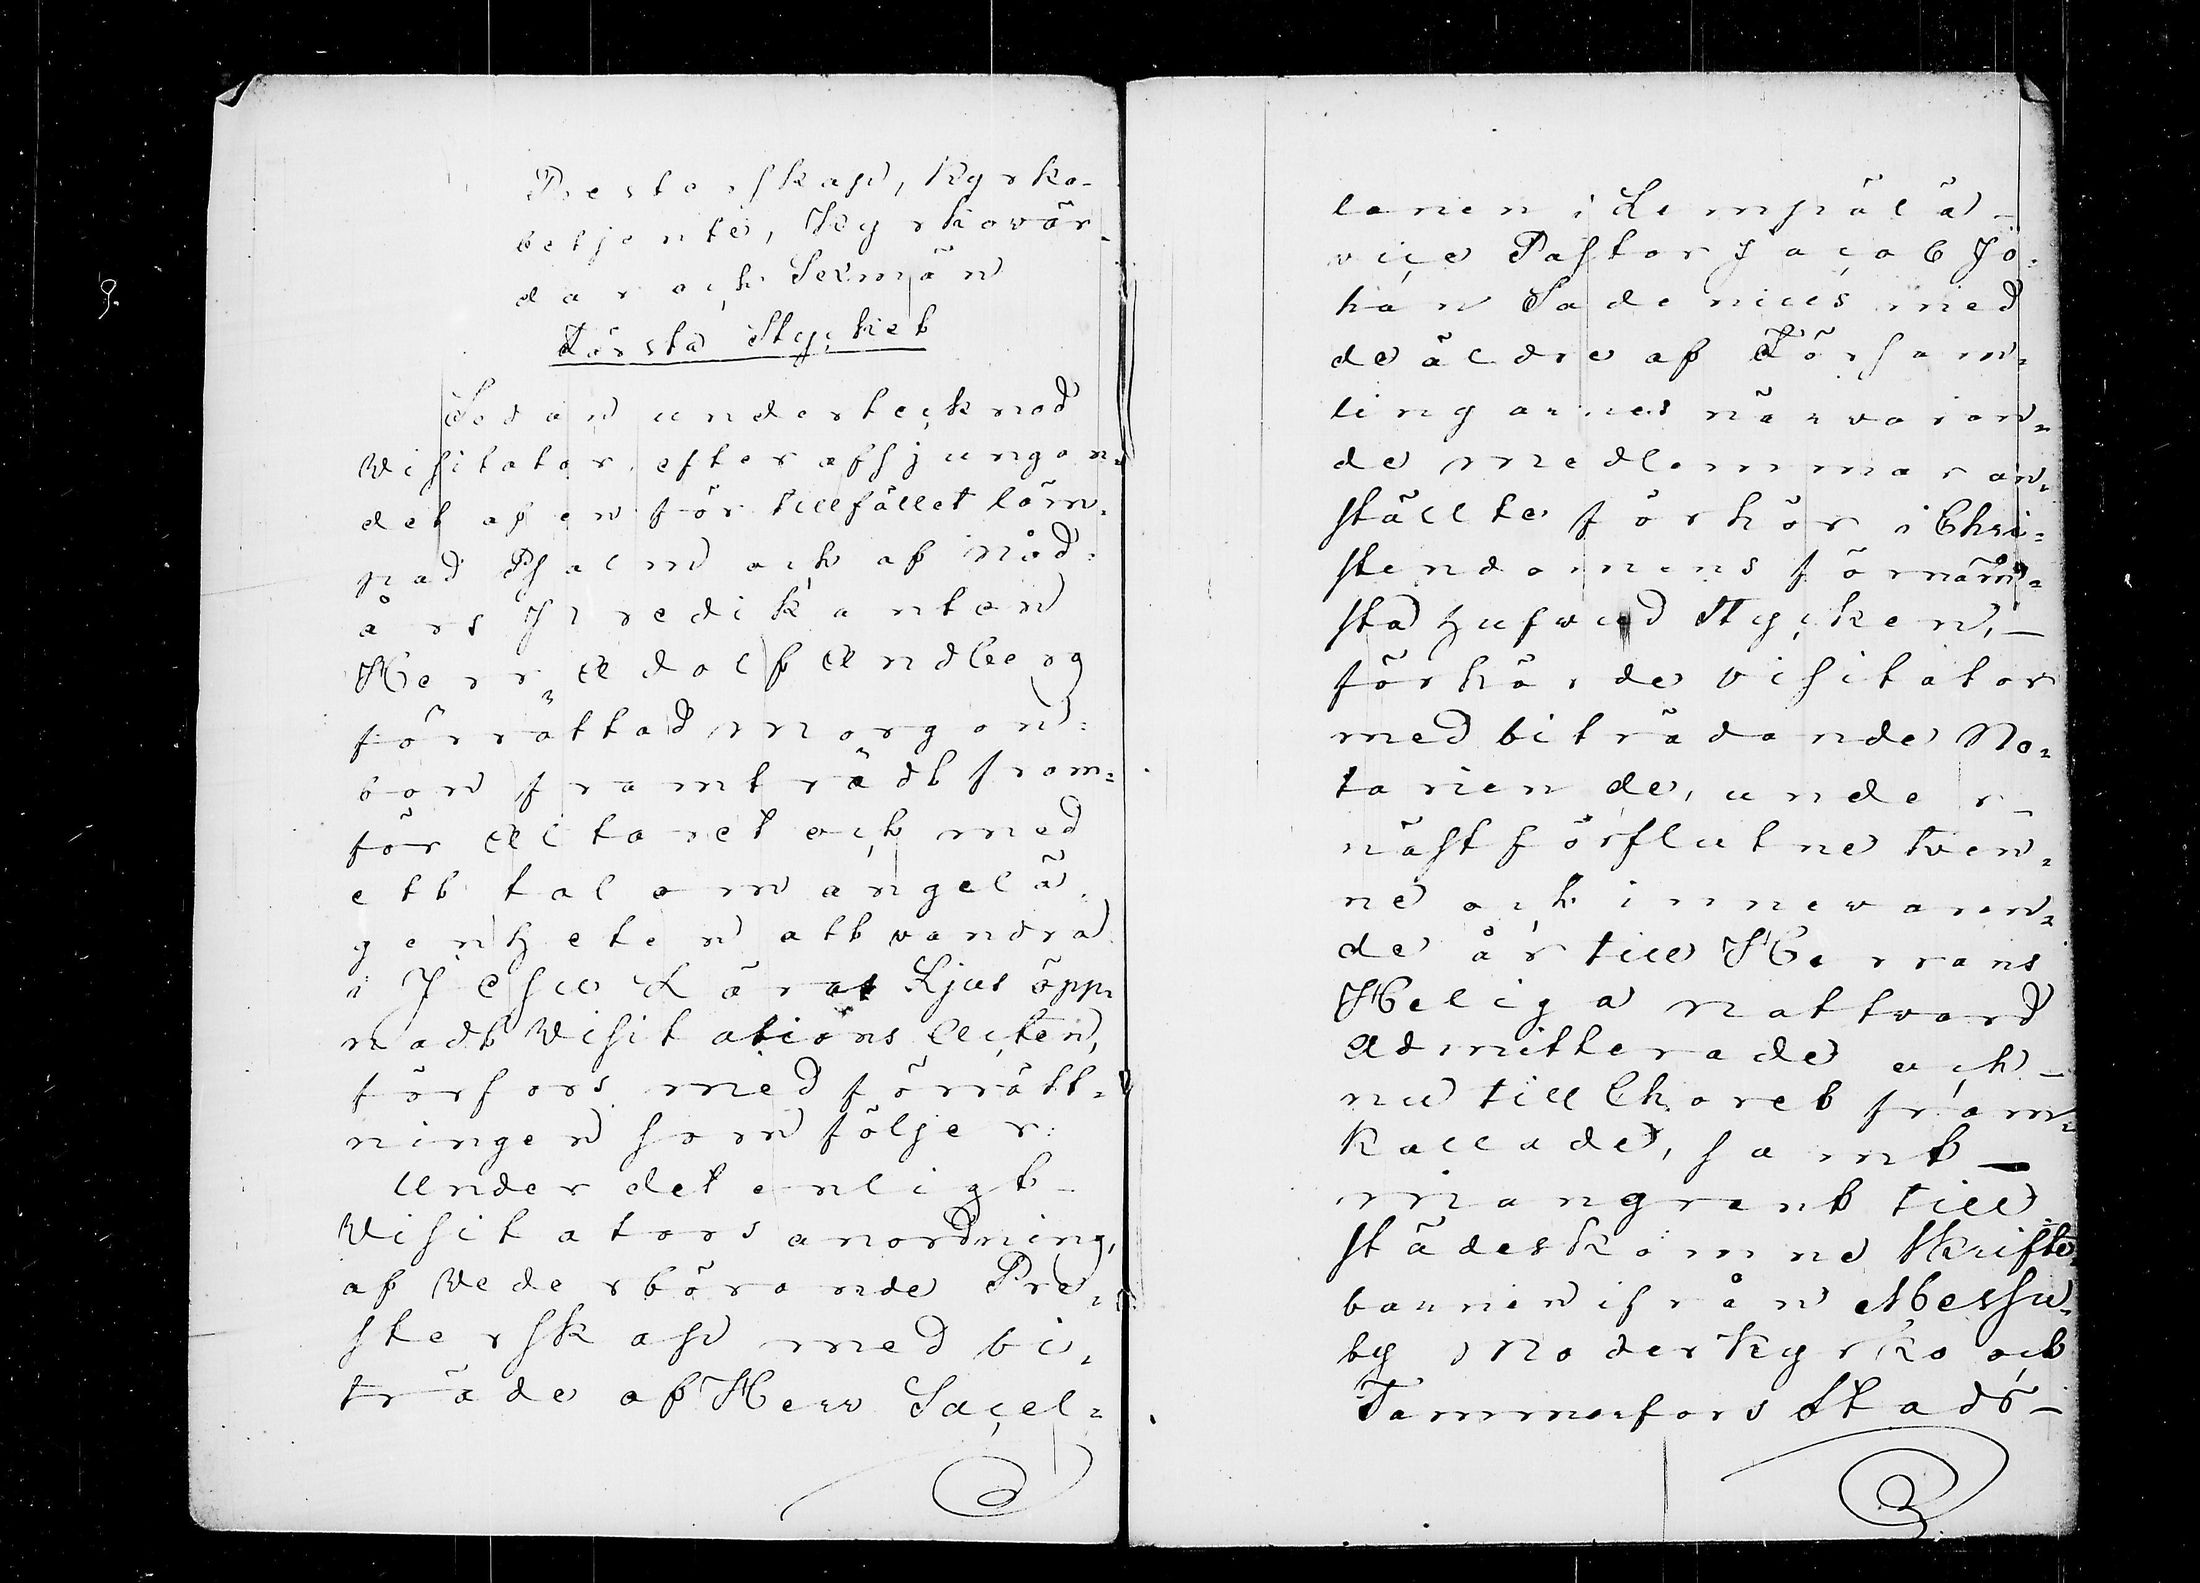 Presterskap, Kyrko-
betjente, Kyrkovär-
dar och Sexmän
Första Stycket
Sedan undertecknad
Visitator, efter afsjungan-
det af en för tillfället läm-
pad Psalm och af Nåd-
års Predikanten
Herr Adolf Andberg
förrättad Morgon-
bön framträdt fram-
för Altaret och med
ett tal om angelä-
genheten att vandra
i Jesu Läras Ljus öpp-
nadt Visitations Acten,
förfors med förrätt-
ningen som följer:
Under det enligt
Visitators anordning,
af Vederbörande Pre-
sterskap med bi-
träde af Herr Sacel-
lanen i Lempälä
vice Pastor Jacob Jo-
han Sadenius med
de äldre af Försam-
lingarnes närvaran-
de medlemmar an-
ställte förhör i Chri-
stendomens förnäm-
sta Hufvud Stycken, -
förhörde Visitator
med biträdande No-
tarien de, under -
näst förflutne tven-
ne och innevaran-
de år till Herrans
Heliga Nattvard
Admitterade och -
nu till Choret fram-
kallade, samt -
mangrant till
städeskomne Skrifte-
barnen ifrån Messu-
by Moderkyrko och
Tammerfors Stads -